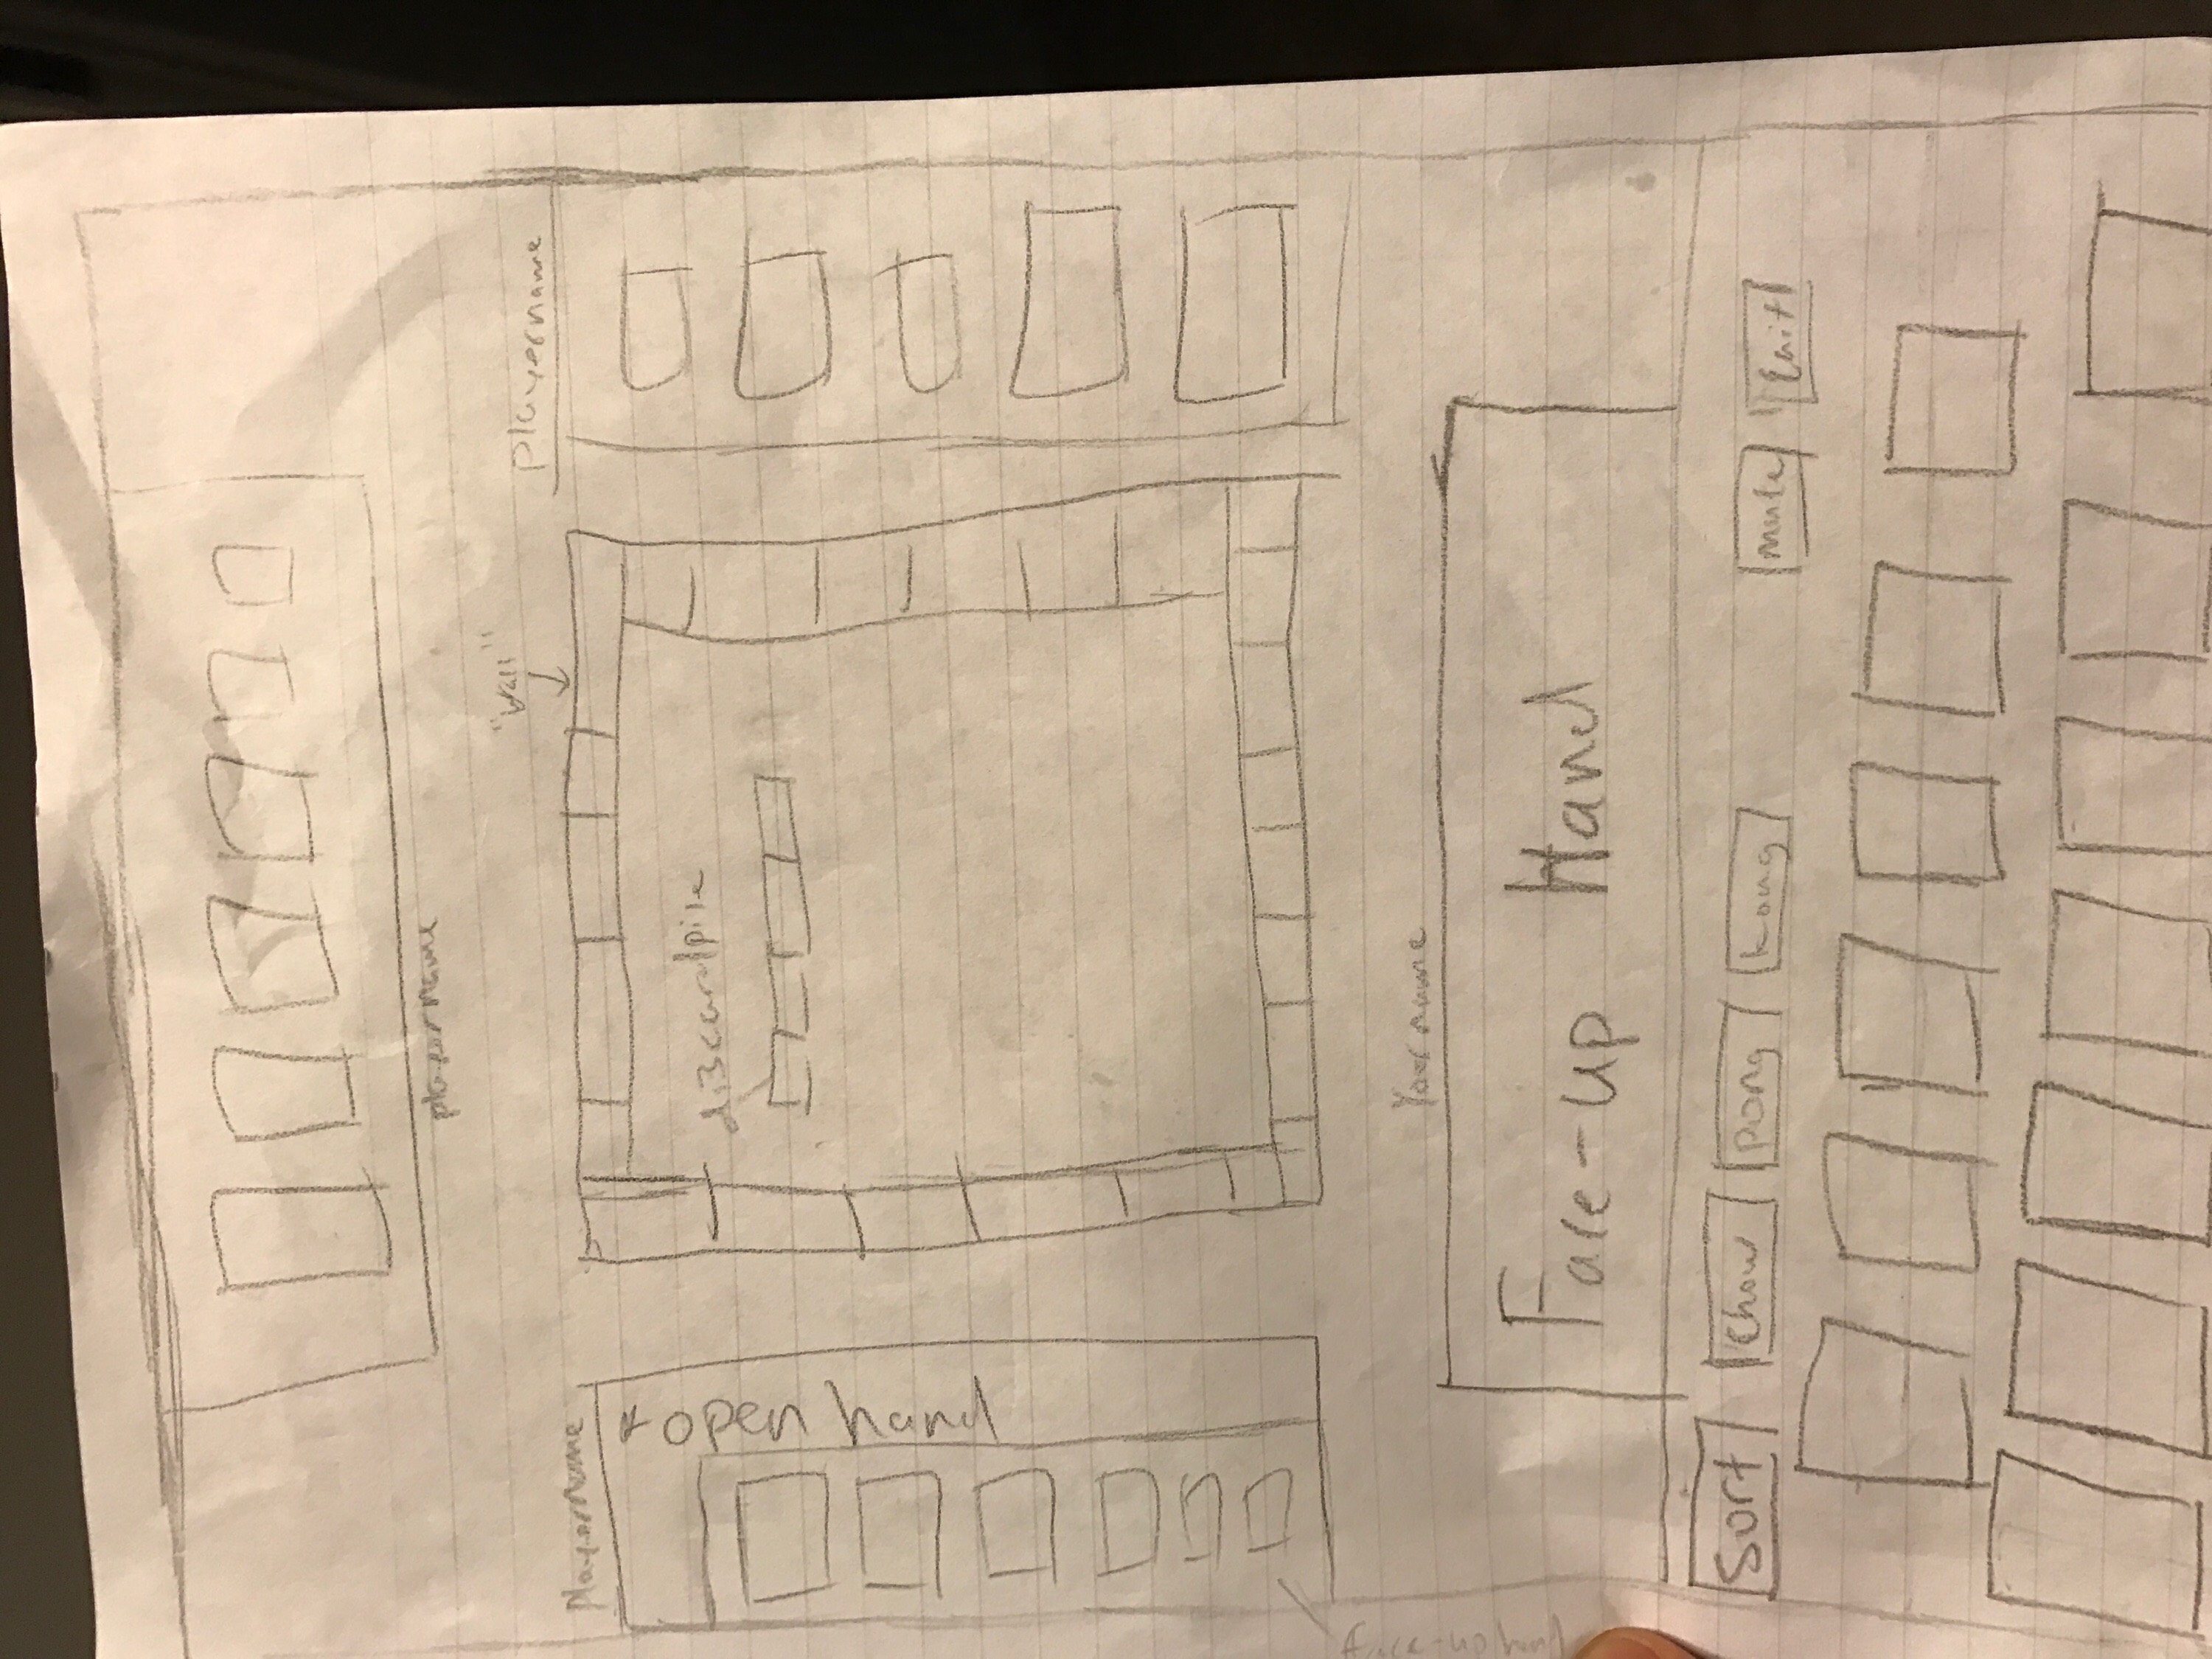 playername
"Wall"
playername
playername
open hand
discardpile
Your name
Face-up Hand
face-up hand
Sort
Chow
pong
kong
mute
Quit